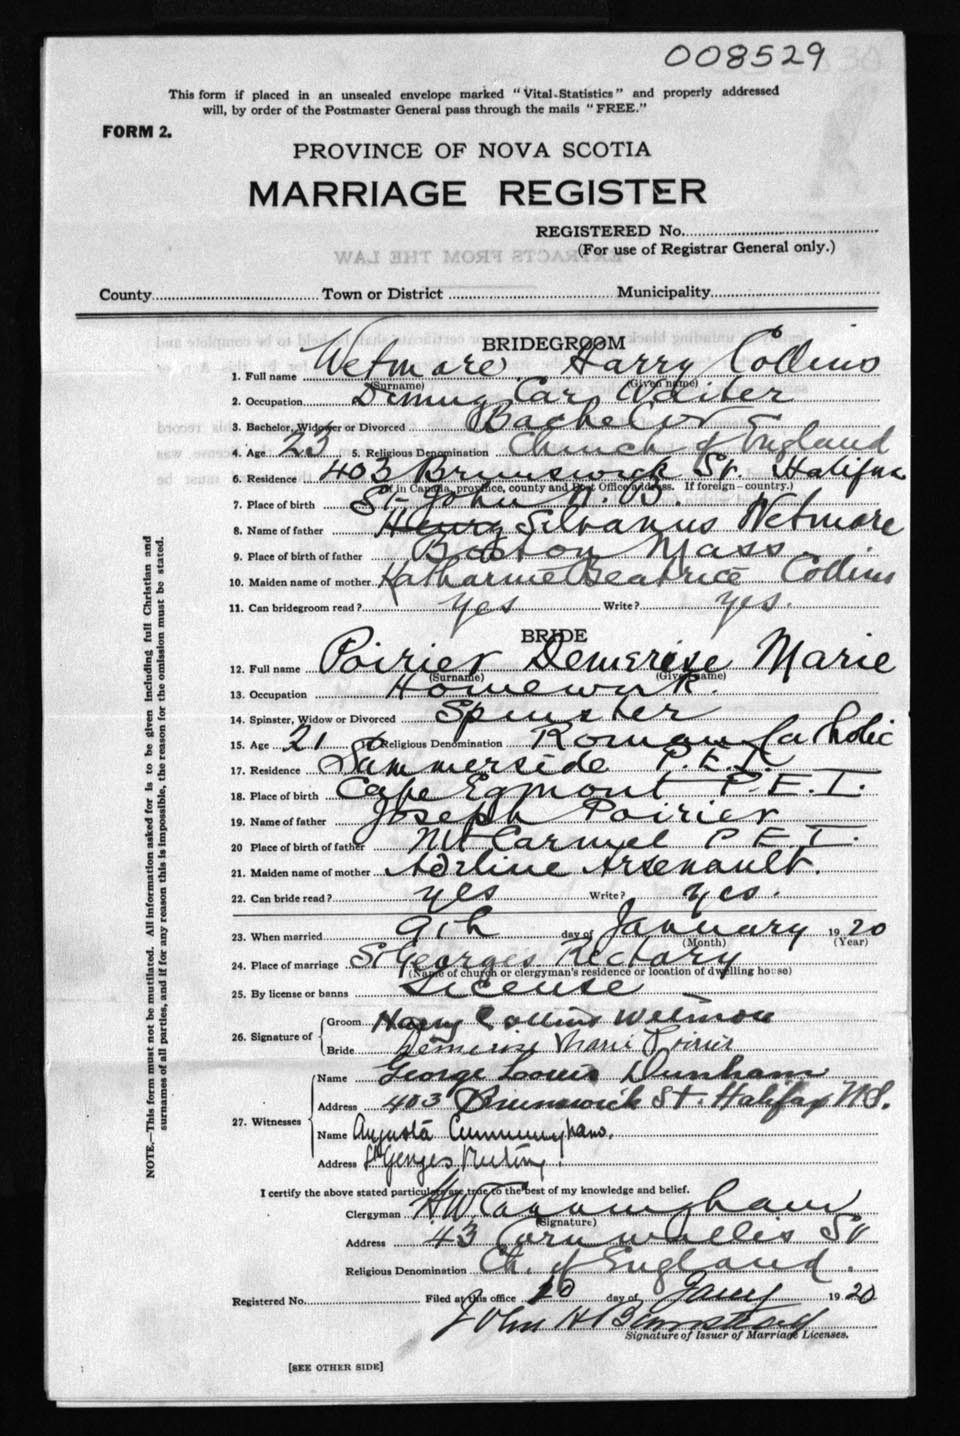 008529
This form if placed in an unsealed envelope marked "Vital Statistics" and properly addressed
will, by order of the Postmaster General pass through the mails "FREE."
FORM 2.
PROVINCE OF NOVA SCOTIA
MARRIAGE REGISTER
REGISTERED No.
(For use of Registrar General only.)
EXTRACTS FROM THE LAW
County Town or District Municipality
BRIDEGROOM
1. Full name Wetmore Harry Collins
(Surname) (Given name)
2. Occupation Dining Car Waiter
3. Bachelor, Widower or Divorced Bachelor
4. Age 23 5. Religious Denomination Church of England
6. Residence 403 Brunswick St. Halifax
(If in Canada, province, county and Post Office address. If foreign - country.)
7. Place of birth St John N. B.
8. Name of father Henry Silvanus Wetmore
9. Place of birth of father Boston Mass.
10. Maiden name of mother Katharine Beatrice Collins
11. Can bridegroom read? yes Write? yes.
BRIDE
12. Full name Poirier Demerise Marie
(Surname) (Given name)
13. Occupation Homework.
14. Spinster, Widow or Divorced Spinster
15. Age 21 Religious Denomination Roman Catholic
17. Residence Summerside P.E.I.
18. Place of birth Cape Egmont P.E.I.
19. Name of father Joseph Poirier
20 Place of birth of father Mt Carmel P.E.I.
21. Maiden name of mother Adeline Arsenault.
22. Can bride read? yes Write? yes.
23. When married 9th day of January 1920
(Month) (Year)
24. Place of marriage St Georges Rectory
(Name of church or clergyman's residence or location of dwelling house)
25. By license or banns License
26. Signature of Groom Harry Collins Wetmore
Bride Demerise Marie Poirier
27. Witnesses Name George Louis Dunham
Address 403 Brunswick St. Halifax N.S.
Name Augusta Cunningham.
Address St Georges
I certify the above stated particulars are true to the best of my knowledge and belief.
Clergyman H W Cunningham
(Signature)
Address 43 Cornwallis St
Religious Denomination Ch. of England.
Registered No. Filed at this office 10 day of Jany 1920
John H Barnstead
Signature of Issuer of Marriage Licenses.
[SEE OTHER SIDE]
NOTE.—This form must not be mutilated. All information asked for is to be given including full Christian and
surnames of all parties, and if for any reason this is impossible, the reason for the omission must be stated.